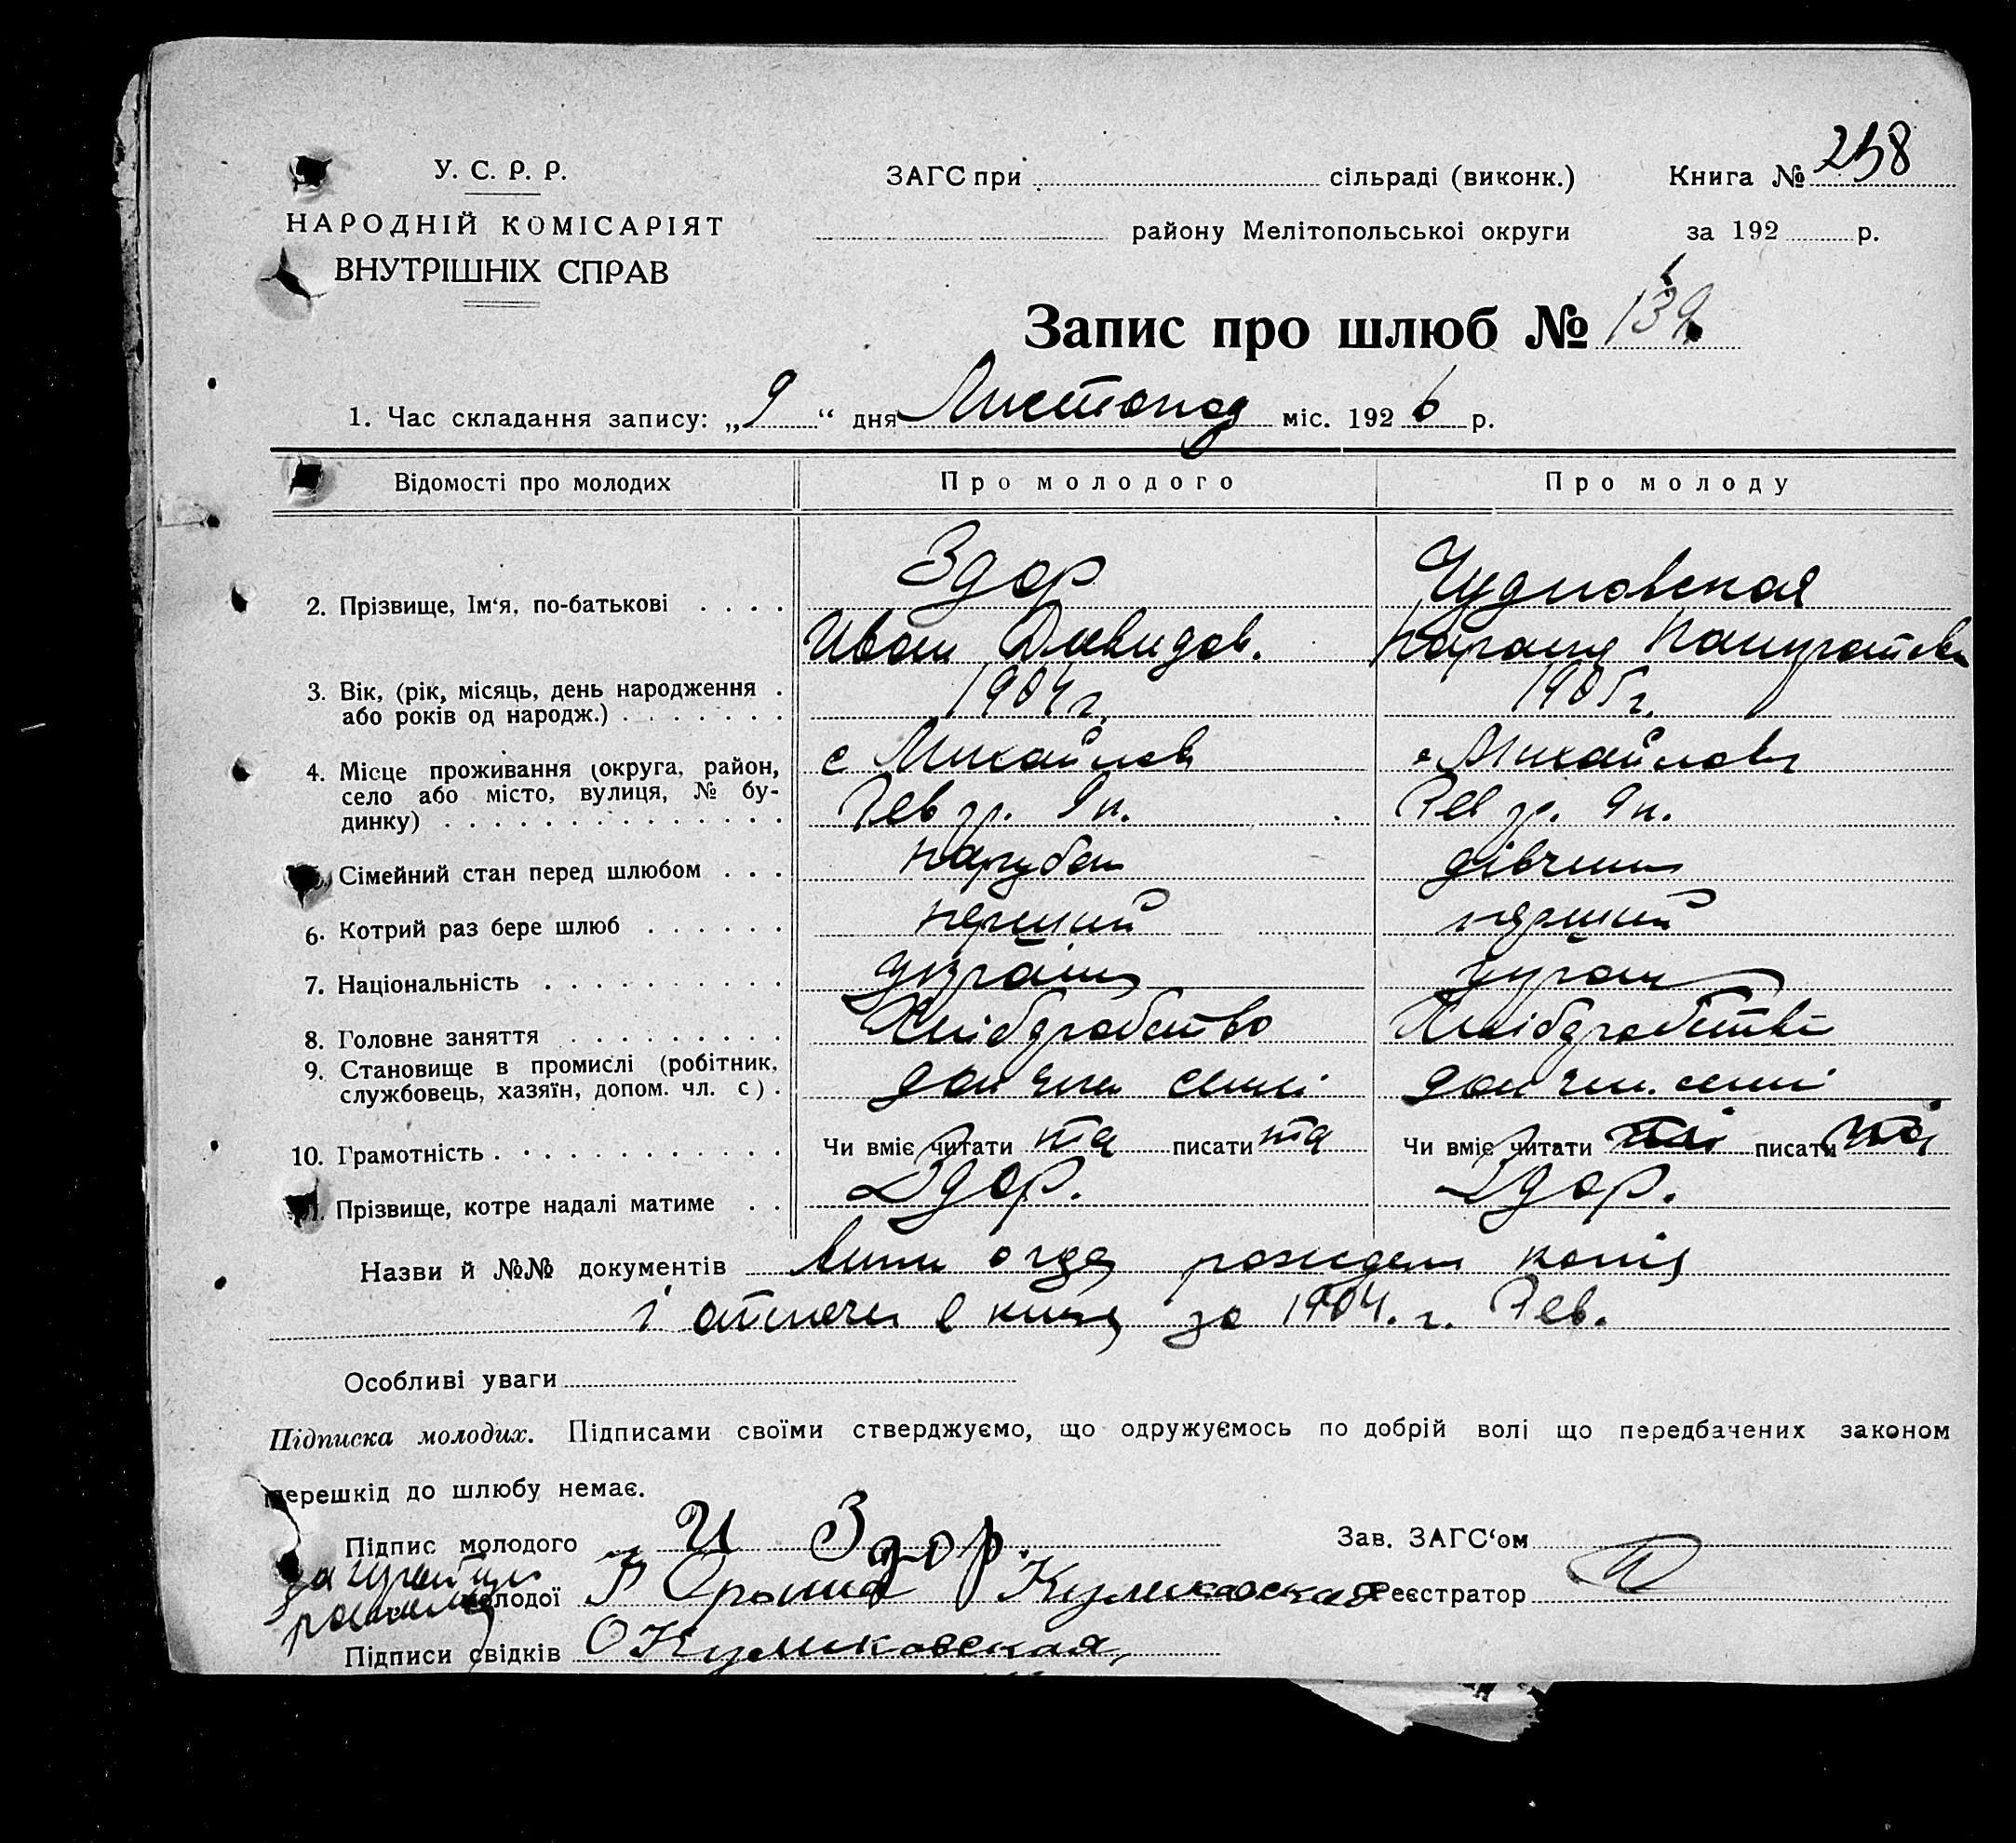 У. С. Р. Р.
НАРОДНІЙ КОМІСАРІЯТ
ВНУТРІШНІХ СПРАВ
ЗАГС при сільраді (виконк.)
району Мелітопольської округи
Книга № 258
за 192 р.
Запис про шлюб № 139
1. Час складання запису: „9“ дня Листопад міс. 1926 р.
Відомості про молодих Про молодого Про молоду
Здор Чудновская
2. Прізвище, Ім'я, по-батькові
Иван Давидов.
3. Вік, (рік, місяць, день народження 1904 г. 1905 г.
або років од народж.)
4. Місце проживання (округа, район, с Михайловк с Михайловк
село або місто, вулиця, № бу-
динку)
Сімейний стан перед шлюбом парубок дівчина
6. Котрий раз бере шлюб перший перший
7. Національність україн украін
8. Головне заняття Хлібдробство Хлібдробство
9. Становище в промислі (робітник,
службовець, хазяїн, допом. чл. с). доп член семі доп чл. семі
10. Грамотність Чи вміє читати та писати та Чи вміє читати писати
Прізвище, котре надалі матиме Здор. Здор.
Назви й №№ документів копія
і за 1904. г. Рев.
Особливі уваги
Підписка молодих. Підписами своїми стверджуємо, що одружуємось по добрій волі що передбачених законом
перешкід до шлюбу немає.
Підпис молодого И Здор.
Зав. ЗАГС'ом
молодої Куликовская
Реєстратор
Підписи свідків О Куликовская,